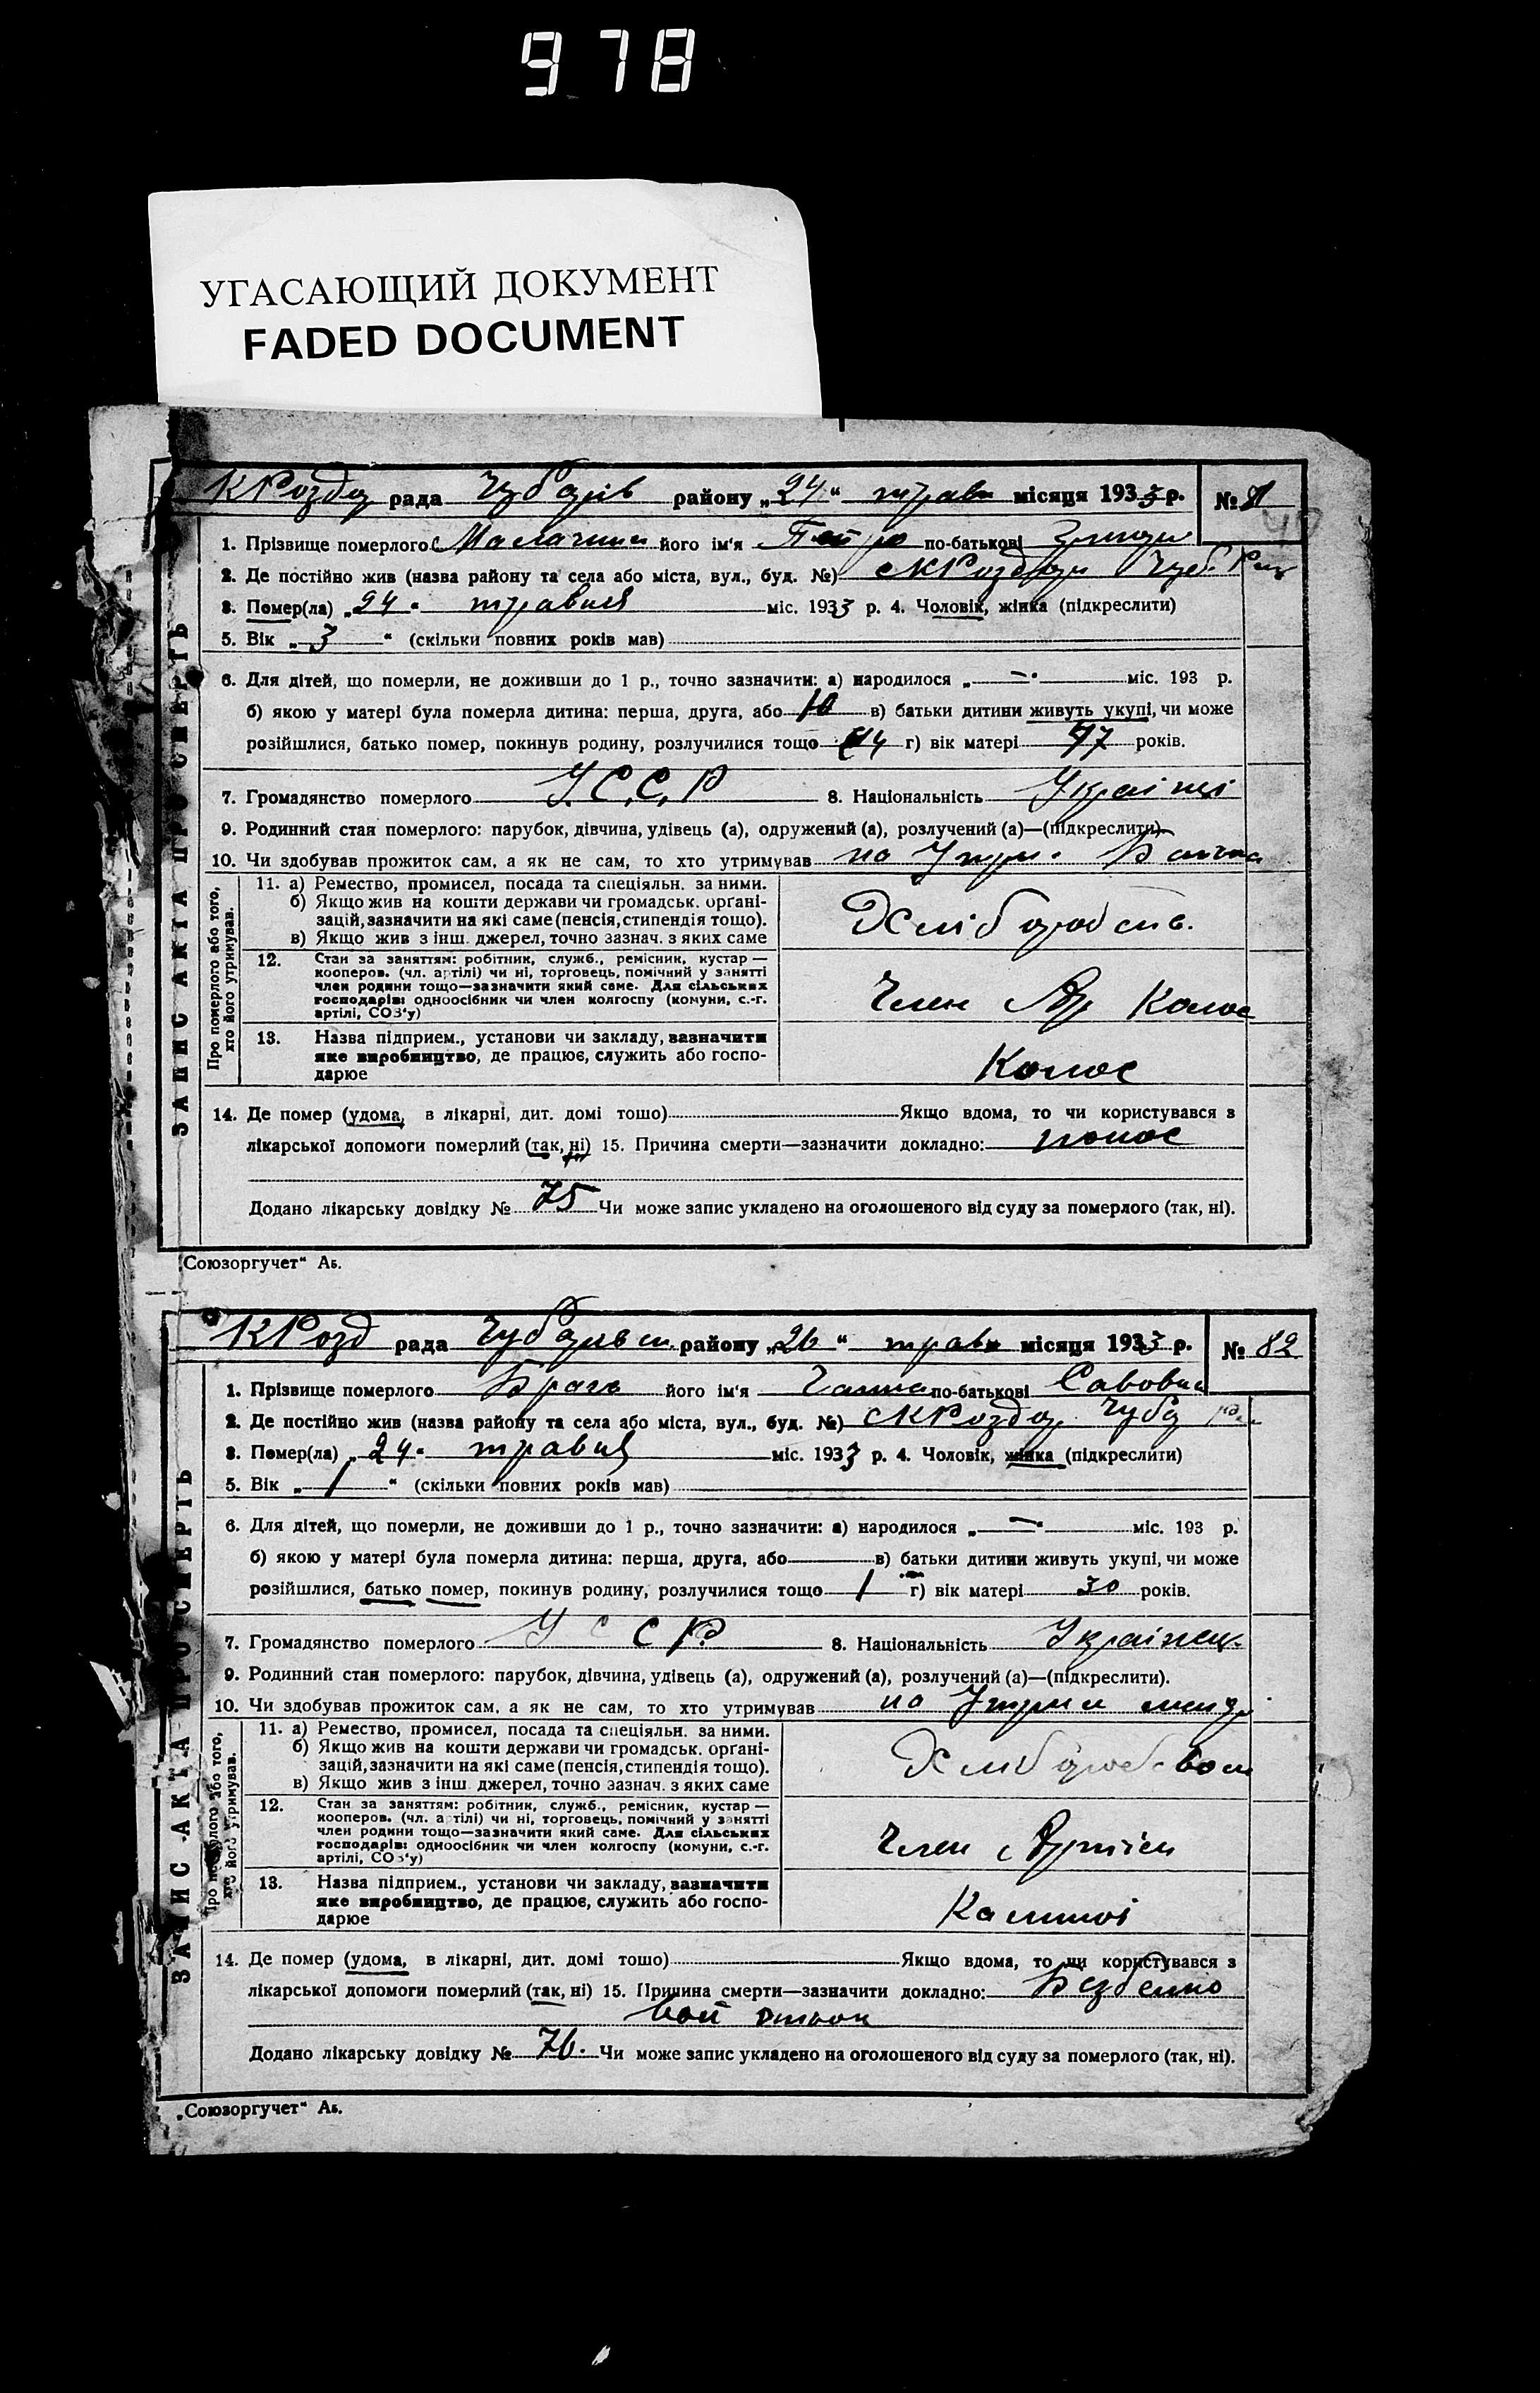 978
УГАСАЮЩИЙ ДОКУМЕНТ
FADED DOCUMENT
ЗАПИС АКТА ПРО СМЕРТЬ
КРозд рада Чубарів району „24“ трав місяця 1933 р. №
1. Прізвище померлого його ім'я Петро по-батькові
2. Де постійно жив (назва району та села або міста, вул., буд. №) Чуб.
3. Помер(ла) „24“ травня міс. 1933 р. 4. Чоловік, жінка (підкреслити)
5. Вік „3“ (скільки повних років мав)
6. Для дітей, що померли, не доживши до 1 р., точно зазначити: а) народилося „—“ міс. 193 р.
б) якою у матері була померла дитина: перша, друга, або 10 в) батьки дитини живуть укупі, чи може
розійшлися, батько помер, покинув родину, розлучилися тощо г) вік матері 47 років.
7. Громадянство померлого У.С.С.Р 8. Національність Україні
9. Родинний стан померлого: парубок, дівчина, удівець (а), одружений (а), розлучений (а)—(підкреслити).
10. Чи здобував прожиток сам, а як не сам, то хто утримував на Утрм. Батька
Про померлого або того, хто його утримував.
11. а) Ремество, промисел, посада та спеціяльн. за ними.
б) Якщо жив на кошти держави чи громадськ. орґані-
зацій, зазначити на які саме (пенсія, стипендія тощо).
в) Якщо жив з інш. джерел, точно зазнач. з яких саме
Хліборобств.
12. Стан за заняттям: робітник, служб., ремісник, кустар —
кооперов. (чл. артілі) чи ні, торговець, помічний у занятті
член родини тощо—зазначити який саме. Для сільських
господарів: одноосібник чи член колгоспу (комуни, с.-г.
артілі, СОЗ'у)
Член Ар Колос
13. Назва підприєм., установи чи закладу, зазначити
яке виробництво, де працює, служить або госпо-
дарює
Колос
14. Де помер (удома, в лікарні, дит. домі тощо) Якщо вдома, то чи користувався з
лікарської допомоги померлий (так, ні) 15. Причина смерти—зазначити докладно: понос
Додано лікарську довідку № 75 Чи може запис укладено на оголошеного від суду за померлого (так, ні).
„Союзоргучет“ Аб.
ЗАПИС АКТА ПРО СМЕРТЬ
КРозд рада району „26“ трав місяця 1933 р. № 82
1. Прізвище померлого Брага його ім'я Ганна по-батькові Савовна
2. Де постійно жив (назва району та села або міста, вул., буд. №) Чуба
3. Помер(ла) „24“ травня міс. 1933 р. 4. Чоловік, жінка (підкреслити)
5. Вік „1“ (скільки повних років мав)
6. Для дітей, що померли, не доживши до 1 р., точно зазначити: а) народилося „—“ міс. 193 р.
б) якою у матері була померла дитина: перша, друга, або в) батьки дитини живуть укупі, чи може
розійшлися, батько помер, покинув родину, розлучилися тощо 1 г) вік матері 30 років.
7. Громадянство померлого У С С Р. 8. Національність Українец.
9. Родинний стан померлого: парубок, дівчина, удівець (а), одружений (а), розлучений (а)—(підкреслити).
10. Чи здобував прожиток сам, а як не сам, то хто утримував на
Про померлого або того, хто його утримував.
11. а) Ремество, промисел, посада та спеціяльн. за ними.
б) Якщо жив на кошти держави чи громадськ. орґані-
зацій, зазначити на які саме (пенсія, стипендія тощо).
в) Якщо жив з інш. джерел, точно зазнач. з яких саме
12. Стан за заняттям: робітник, служб., ремісник, кустар —
кооперов. (чл. артілі) чи ні, торговець, помічний у занятті
член родини тощо—зазначити який саме. Для сільських
господарів: одноосібник чи член колгоспу (комуни, с.-г.
артілі, СОЗ'у)
Член Артіли
13. Назва підприєм., установи чи закладу, зазначити
яке виробництво, де працює, служить або госпо-
дарює
14. Де помер (удома, в лікарні, дит. домі тощо) Якщо вдома, то чи користувався з
лікарської допомоги померлий (так, ні) 15. Причина смерти—зазначити докладно:
Додано лікарську довідку № 76. Чи може запис укладено на оголошеного від суду за померлого (так, ні).
„Союзоргучет“ Аб.